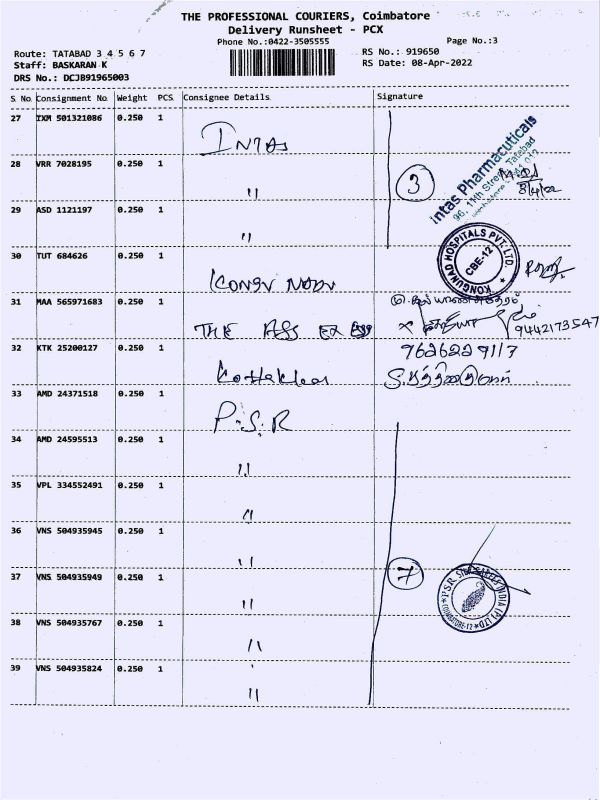 THE PROFESSIONAL COURIERS, Coimbatore
Delivery Runsheet - PCX
Phone No.:0422-3505555
Page No.:3
Route: TATABAD 3 4 5 6 7
RS No.: 919650
Staff: BASKARAN K
RS Date: 08-Apr-2022
DRS No.: DCJB91965003
S No Consignment No Weight PCS Consignee Details Signature
27 IXM 501321086 0.250 1 INTAS
Intas Pharmaceuticals
96, 11th Street, Tatabad
28 VRR 7028195 0.250 1 " 3
8/4/22
29 ASD 1121197 0.250 1 "
30 TUT 684626 0.250 1
KONGUNAD HOSPITALS PVT. LTD.
CBE-12
31 MAA 565971683 0.250 1 THE
9442173547
32 KTK 25200127 0.250 1
9626229117
33 AMD 24371518 0.250 1 P.S.R
34 AMD 24595513 0.250 1 "
35 VPL 334552491 0.250 1 "
36 VNS 504935945 0.250 1 "
37 VNS 504935949 0.250 1 " 7
P.S.R. SILK SAREES INDIA (P) LTD
COIMBATORE-12
38 VNS 504935767 0.250 1 "
39 VNS 504935824 0.250 1 "